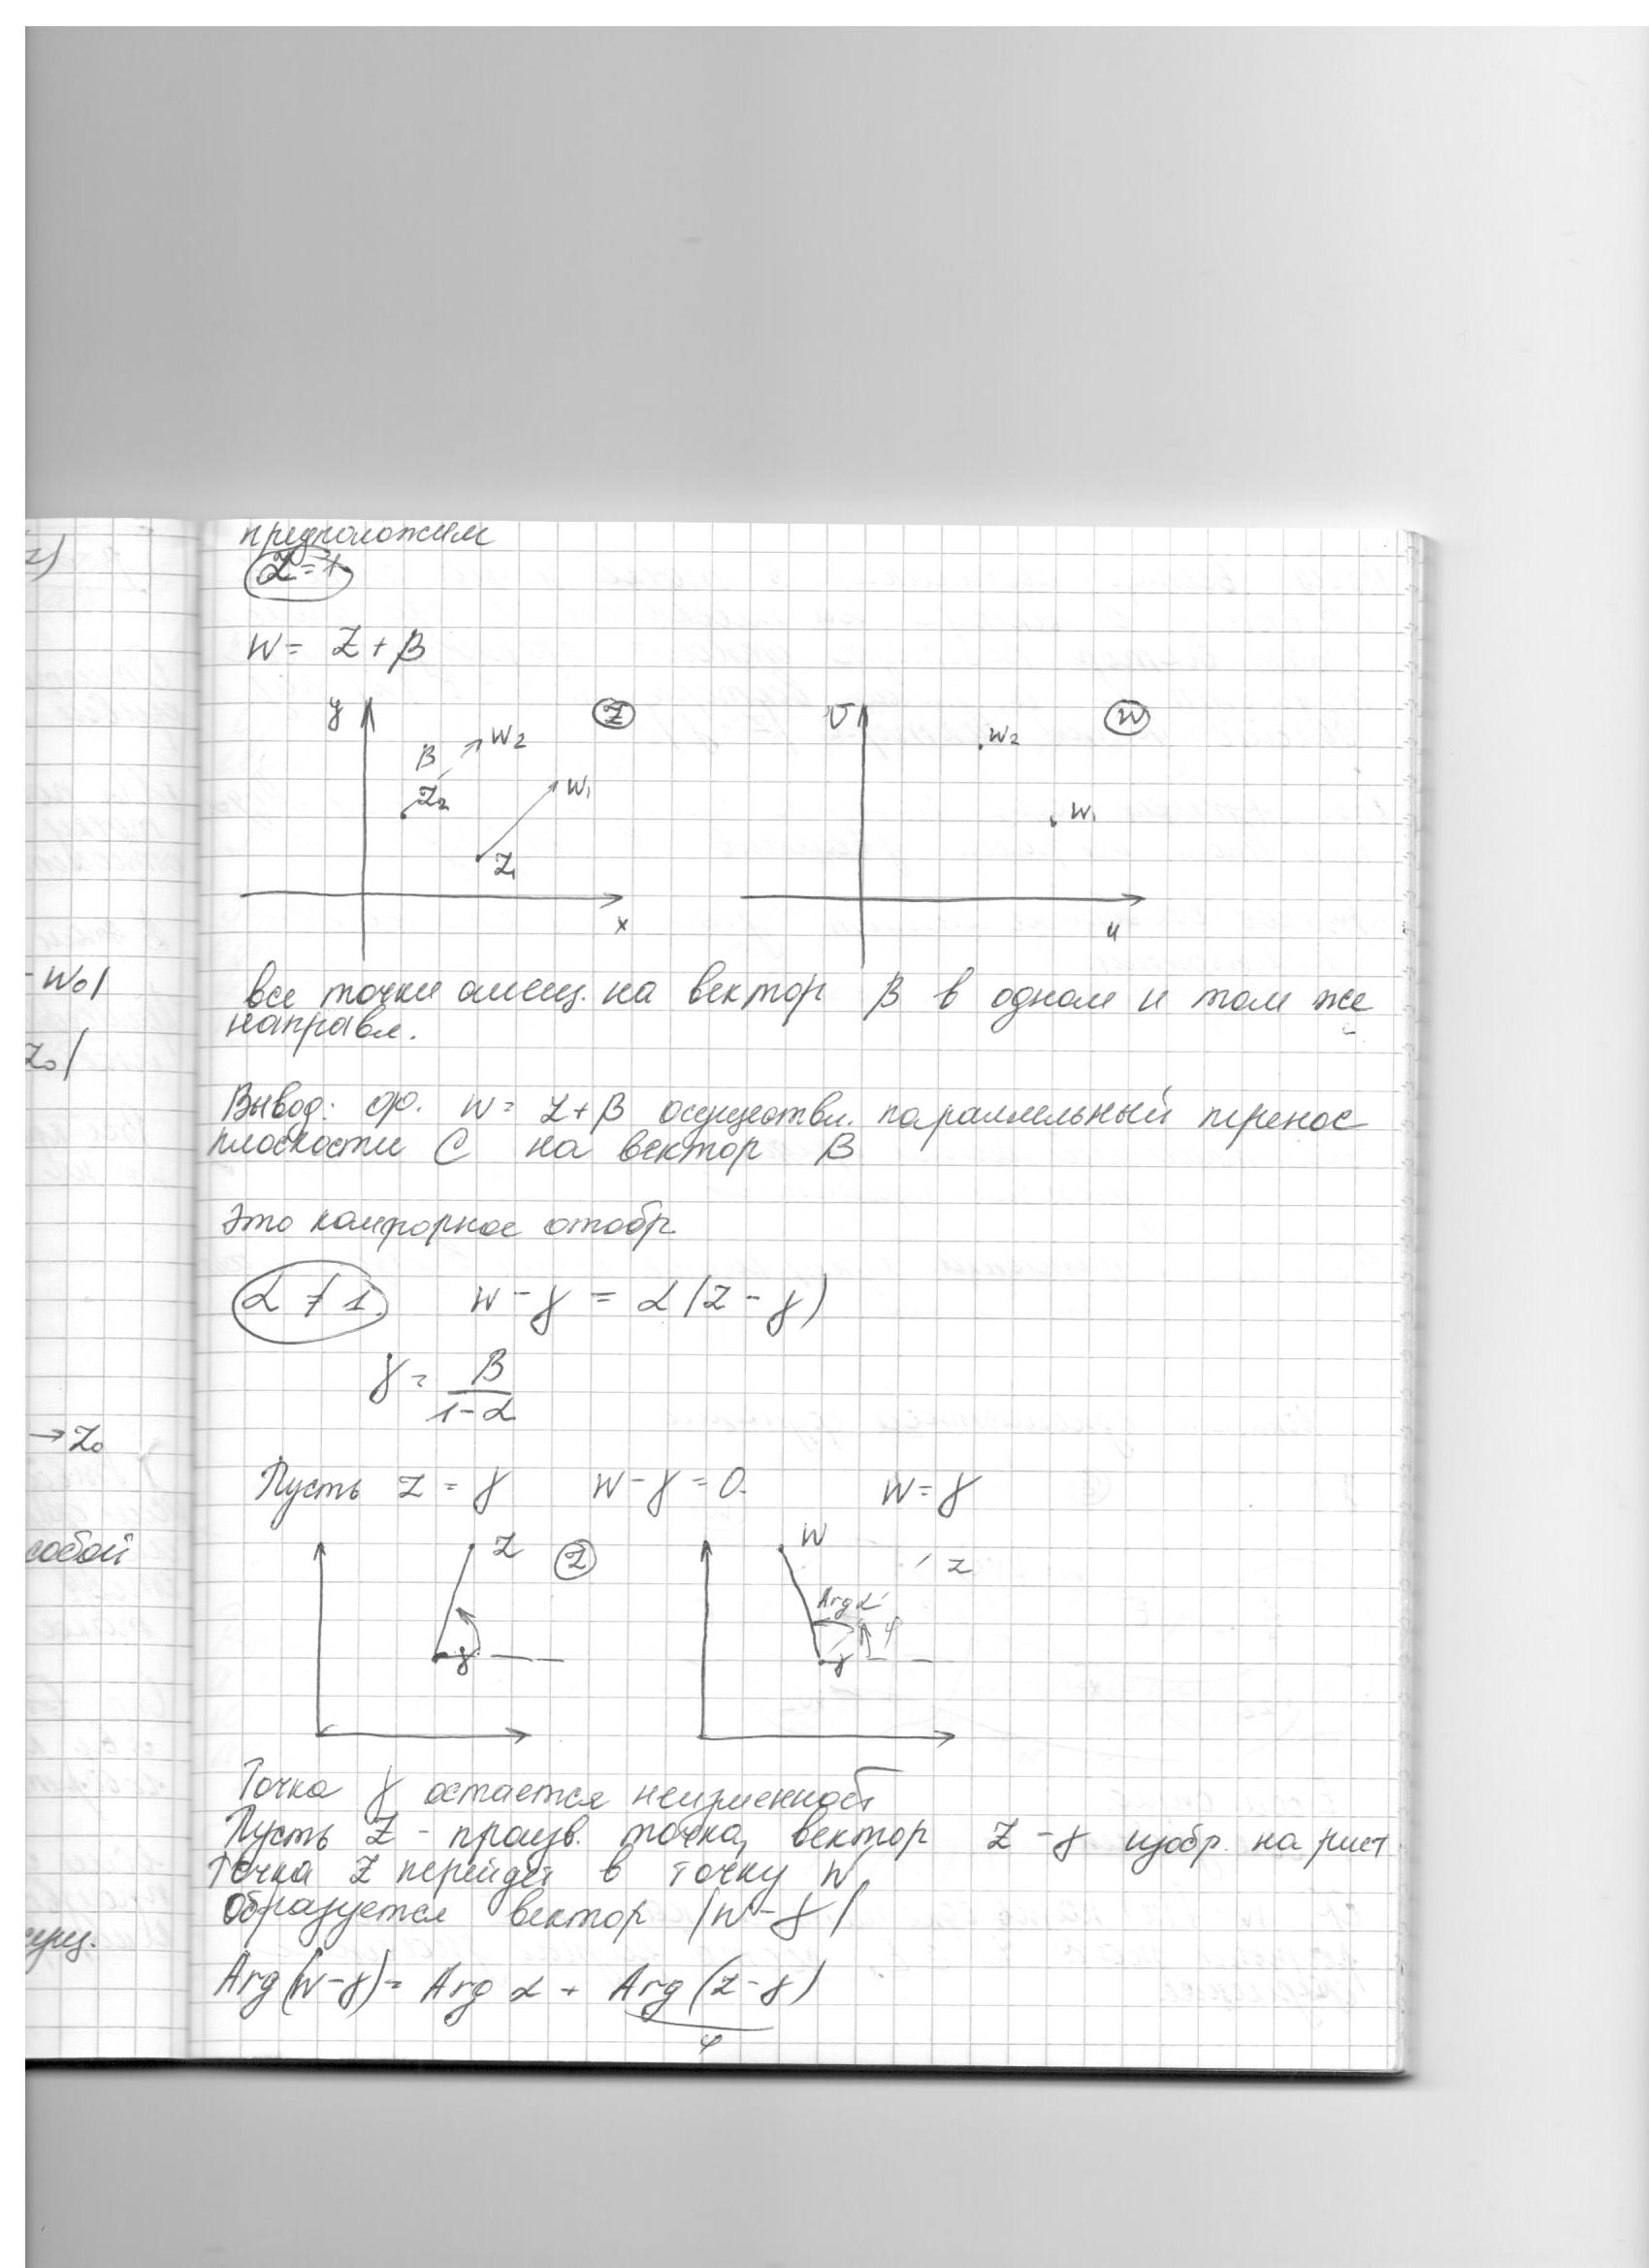 предположим
α = 1.
w = z + β
y
z
v
w
β
w₂
w₂
z₂
w₁
w₁
z₁
x
u
все точки смещ. на вектор β в одном и том же
направл.
Вывод: ф. w = z + β осуществл. параллельный перенос
плоскости C на вектор β
Это конформное отобр.
α ≠ 1. w - γ = α(z - γ)
γ = β/(1-α)
Пусть z = γ w - γ = 0. w = γ
z
z
w
z
Arg α
φ
γ
γ
Точка γ остается неизменной
Пусть z - произв. точка, вектор z - γ изобр. на рис.
точка z перейдет в точку w,
образуется вектор |w - γ|
Arg(w - γ) = Arg α + Arg(z - γ)
φ
z)
- w₀|
z₀|
→ z₀
собой